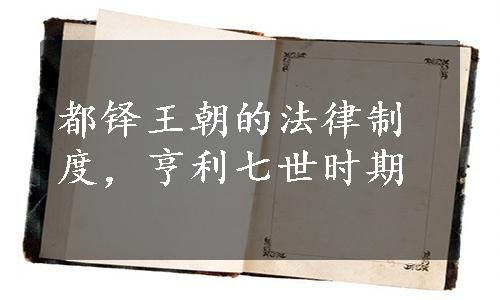 都铎王朝的法律制
度，亨利七世时期